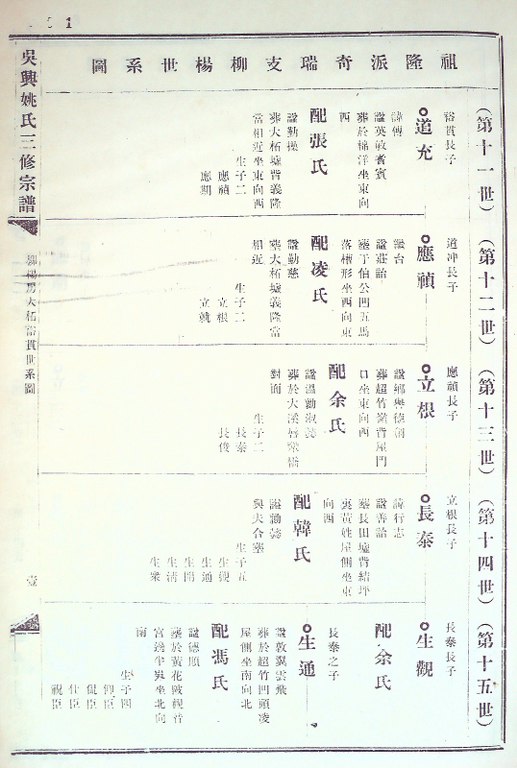 祖隆派奇瑞支柳楊世系圖
吳興姚氏三修宗譜
柳楊房大柘裕貫世系圖
壹
(第十一世)
裕貫長子
道充
諱傅
諡英敏耆賓
葬於棉洋坐東向
西
配張氏
諡勤操
葬大柘墟背義隆
當相近坐東向西
生子二
應禎
應期
(第十二世)
道冲長子
應禎
諡莊詒
葬于伯公凹五馬
落槽形坐西向東
配凌氏
諡勤慈
葬大柘墟義隆當
相近
生子二
立根
立
(第十三世)
應禎長子
立根
葬超竹嶺背屋門
口坐東向西
配余氏
對面
生子二
長泰
長俊
(第十四世)
立根長子
長泰
諱行志
諡善詒
葬長田墟背結坪
裏黃姓屋側坐東
向西
配韓氏
與夫合葬
生子五
生觀
生通
生開
生清
生業
(第十五世)
長泰長子
生觀
配余氏
長泰之子
生通
諡敦翼雲飛
葬於超竹凹頭凌
屋側坐南向北
配馮氏
諡德順
葬於黃花陂觀音
宮幾半嶺坐北向
南
生子四
仰臣
侃臣
仕臣
祝臣